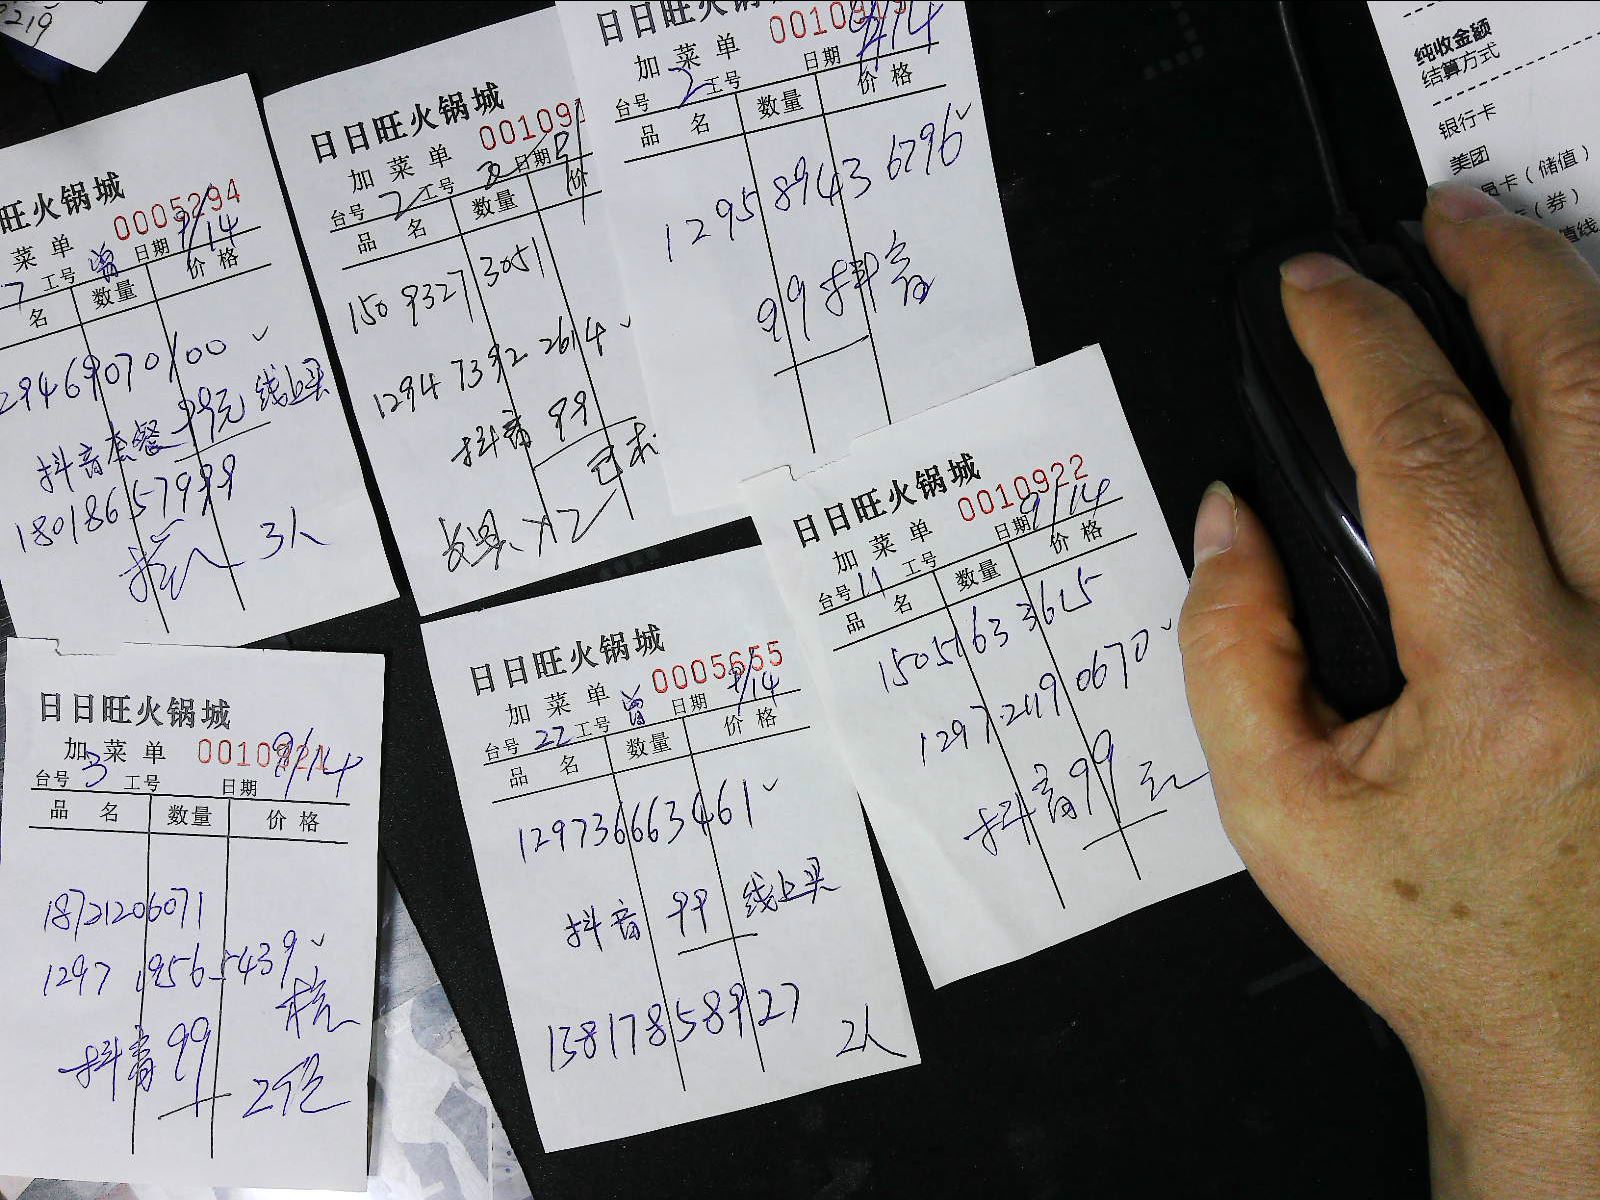 219
旺火锅城
0005294
菜单
日期 9/14
7 工号 曾
名 数量 价格
29469070100
抖音套餐 99元 线上买
18018657999
3人
日日旺火锅城
001091
加菜单
台号 2 工号 日期
品名 数量 价
150 9327 3051
1294 7392 2614
抖音 99
X2
日日旺火锅城
加菜单 日期 9/14
台号 2 工号
品名 数量 价格
1295 8943 6796
99抖音
纯收金额
结算方式
银行卡
美团
员卡（储值）
（券）
值线
日日旺火锅城
0010921
加菜单
台号 3 工号 日期 9/14
品名 数量 价格
18721206071
1297 1956 5439
核
抖音 99
2位
日日旺火锅城
0005655
加菜单
台号 22 工号 曾 日期 9/14
品名 数量 价格
129736663461
抖音 99 线上买
15817858927
2人
日日旺火锅城
0010922
加菜单 日期 9/14
台号 11 工号
品名 数量 价格
15051633615
1297 2419 0670
抖音99元